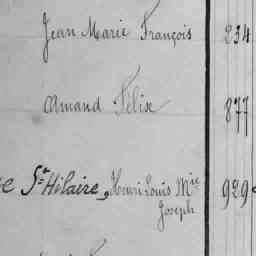 Jean Marie François 234
Amand Félix 877
e St Hilaire, Henri Louis Mie 929
Joseph